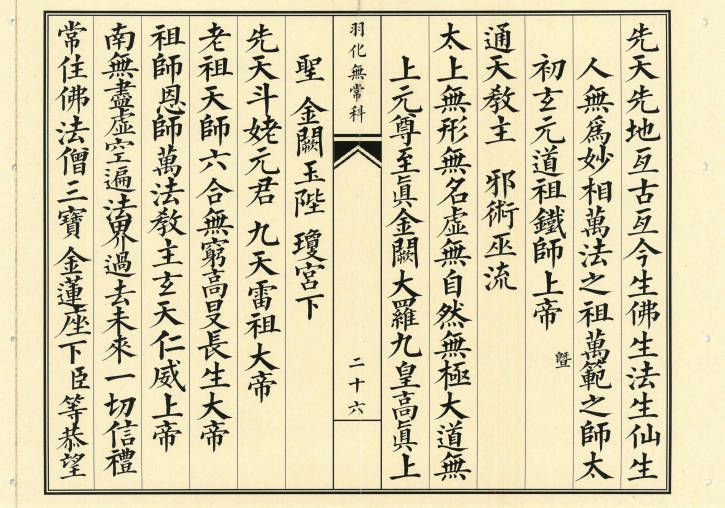 先天先地亙古亙今生佛生法生仙生
人無爲妙相萬法之祖萬範之師太
初玄元道祖鐵師上帝 暨
通天教主 邪術巫流
太上無形無名虛無自然無極大道無
上元尊至眞金闕大羅九皇高眞上
羽化無常科 二十六
聖 金闕玉陛 瓊宮下
先天斗姥元君 九天雷祖大帝
老祖天師六合無窮高旻長生大帝
祖師恩師萬法教主玄天仁威上帝
南無盡虛空遍法界過去未來一切信禮
常住佛法僧三寶 金蓮座下臣等恭望